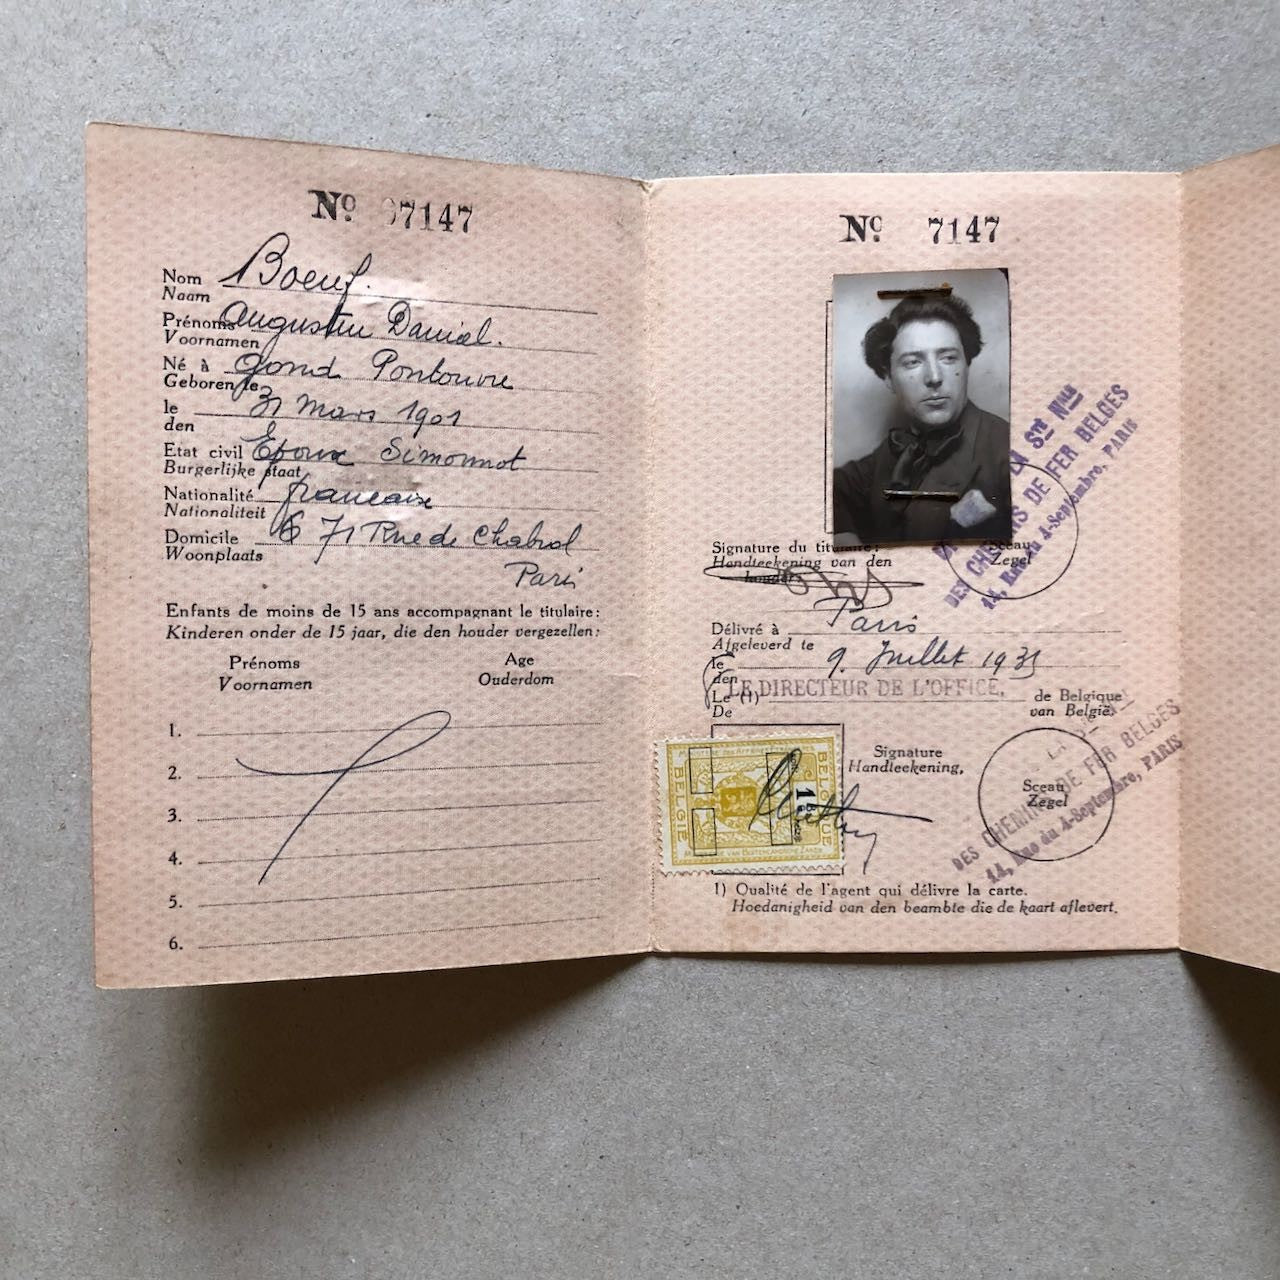 Nº 07147
Nom Boeuf.
Naam
Prénoms Augustin Daniel.
Voornamen
Né à Gond Pontouvre
Geboren te
le 31 Mars 1901
den
Etat civil Epoux Simonnot
Burgerlijke staat
Nationalité francaise
Nationaliteit
Domicile 71 Rue de Chabrol
Woonplaats
Paris
Enfants de moins de 15 ans accompagnant le titulaire:
Kinderen onder de 15 jaar, die den houder vergezellen:
Prénoms Age
Voornamen Ouderdom
1.
2.
3.
4.
5.
6.
Nº 7147
LA Sté Nle
DES CHEMINS DE FER BELGES
14, Rue du 4-Septembre, PARIS
Signature du titulaire:
Handteekening van den
houder
Sceau
Zegel
Délivré à Paris
Afgeleverd te
le 9 Juillet 1935
den
LE DIRECTEUR DE L'OFFICE,
Le (1) de Belgique
De van België.
MINISTÈRE DES AFFAIRES ETRANGÈRES
BELGIQUE
BELGIË
MINISTERIE VAN BUITENLANDSCHE ZAKEN
Signature
Handteekening,
LA Sté Nle
DES CHEMINS DE FER BELGES
14, Rue du 4-Septembre, PARIS
Sceau
Zegel
1) Qualité de l'agent qui délivre la carte.
Hoedanigheid van den beambte die de kaart aflevert.